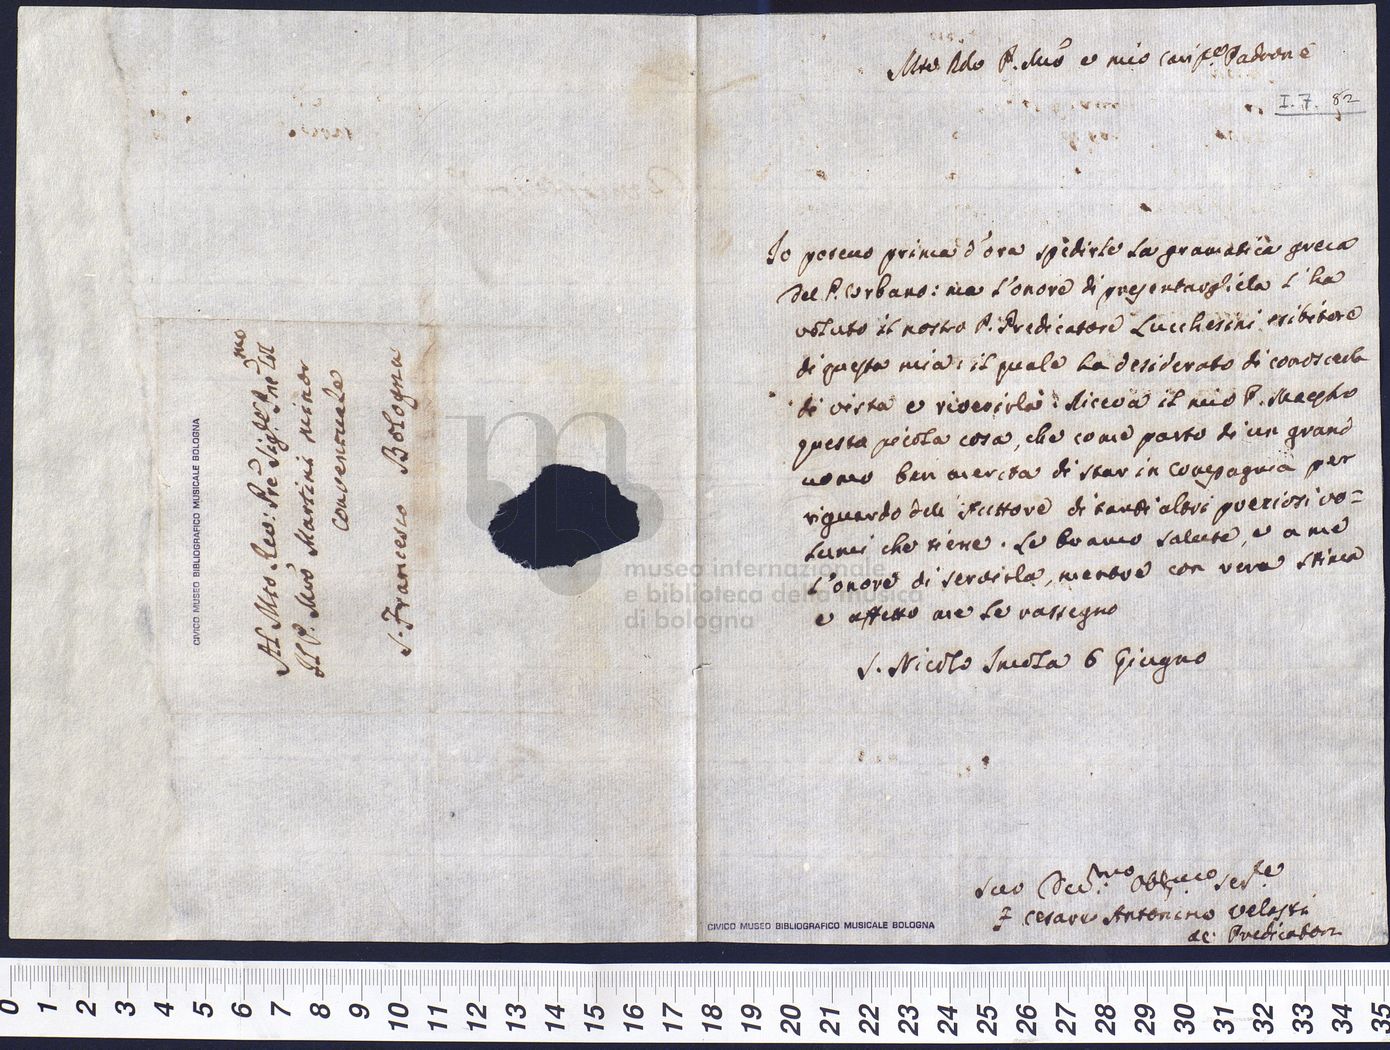 Al Mto Rev: Pre Sig.r Pne Col.mo
Il P. Mro Martini minor
conventuale
S. Francesco Bologna
CIVICO MUSEO BIBLIOGRAFICO MUSICALE BOLOGNA
Mto Rdo P. Mro e mio Padrone
I. 7. 82
Io potevo prima d'ora spedirle la gramatica greca
del P. Urbano: ma l'onore di presentargliela l'ha
voluto il nostro P. Predicatore Lucchesini esibitore
di questa mia: il quale ha desiderato di conoscerla
di vista e riverirla: Riceva il mio P. Maestro
questa picola cosa, che come parto di un grand
uomo ben merita di star in Compagnia per
riguardo dell' Auttore di tanti altri preziosi vo=
lumi che tiene. Le bramo salute, e a me
l'onore di servirla, mentre con vera stima
e affetto me le rassegno
S. Nicolo Imola 6 Giugno
Suo Dev.mo Obb.mo Ser.re
F Cesare Antonino Velasti
de' Predicatori
CIVICO MUSEO BIBLIOGRAFICO MUSICALE BOLOGNA
museo internazionale
e biblioteca della musica
di bologna
0 1 2 3 4 5 6 7 8 9 10 11 12 13 14 15 16 17 18 19 20 21 22 23 24 25 26 27 28 29 30 31 32 33 34 35